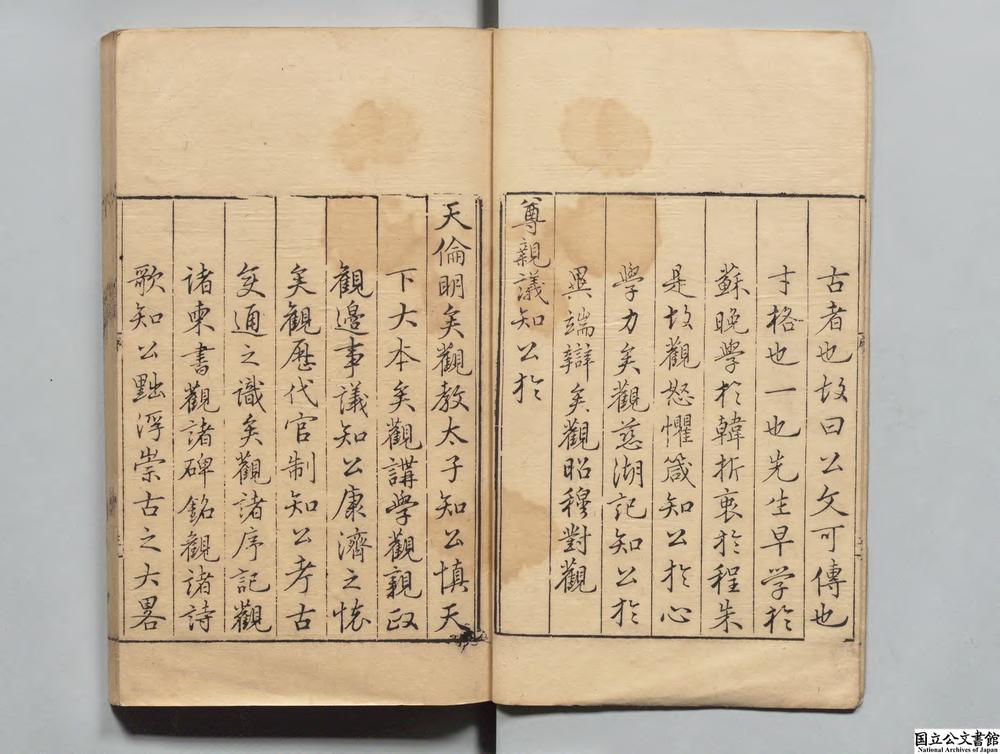 古者也故曰公文可傳也
才格也一也先生早学於
蘇晚學於韓折衷於程朱
是故觀怒懼箴知公於心
學力矣觀慈湖記知公於
異端辯矣觀昭穆對觀
尊親議知公於
天倫明矣觀教太子知公慎天
下大本矣觀講學觀親政
觀邊事議知公康濟之懐
矣觀歷代官制知公考古
変通之識矣觀諸序記觀
諸柬書觀諸碑銘觀諸詩
歌知公黜浮崇古之大畧
国立公文書館
National Archives of Japan